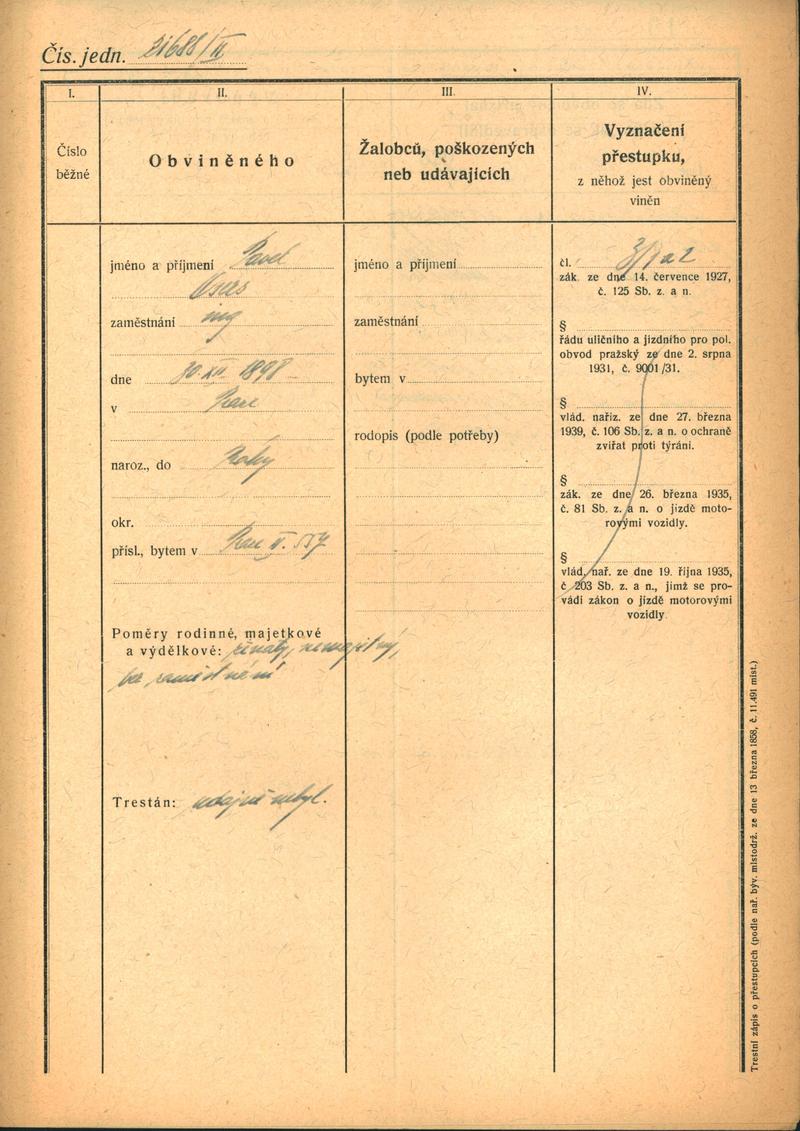 Čís. jedn. 21688/II
I.
Číslo
běžné
II.
Obviněného
III.
Žalobců, poškozených
neb udávajících
IV.
Vyznačení
přestupku,
z něhož jest obviněný
viněn
jméno a příjmení Pavel
zaměstnání ing
dne 30. XII. 1898
v
naroz., do
okr.
přísl., bytem v II.
Poměry rodinné, majetkové
a výdělkové: ženatý, nemajetný,
bez zaměstnání
Trestán: údajně nebyl.
jméno a příjmení
zaměstnání
bytem v
rodopis (podle potřeby)
čl. 3/1 a 2
zák. ze dne 14. července 1927,
č. 125 Sb. z. a n.
§
řádu uličního a jízdního pro pol.
obvod pražský ze dne 2. srpna
1931, č. 9001/31.
§
vlád. nařiz. ze dne 27. března
1939, č. 106 Sb. z. a n. o ochraně
zvířat proti týrání.
§
zák. ze dne 26. března 1935,
č. 81 Sb. z. a n. o jízdě moto-
rovými vozidly.
§
vlád. nař. ze dne 19. října 1935,
č 203 Sb. z. a n., jímž se pro-
vádí zákon o jízdě motorovými
vozidly
Trestní zápis o přestupcích (podle nař. býv. místodrž. ze dne 13 března 1858, č. 11.491 míst.)